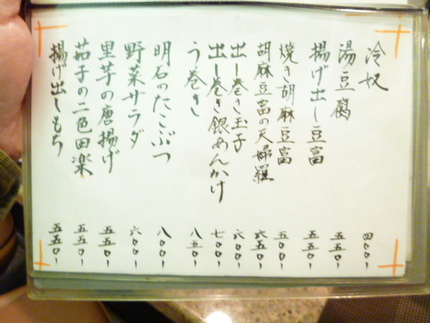 冷奴 四〇〇-
湯豆腐 五五〇-
揚げ出し豆富 五五〇-
焼き胡麻豆富 五〇〇-
胡麻豆富の天婦羅 六五〇-
出し巻き玉子 六〇〇-
出し巻き銀あんかけ 七〇〇-
う巻き 八五〇-
明石のたこぶつ 八〇〇-
野菜サラダ 六〇〇-
里芋の唐揚げ 五五〇-
茄子の二色田楽 五五〇-
揚げ出しもち 五五〇-